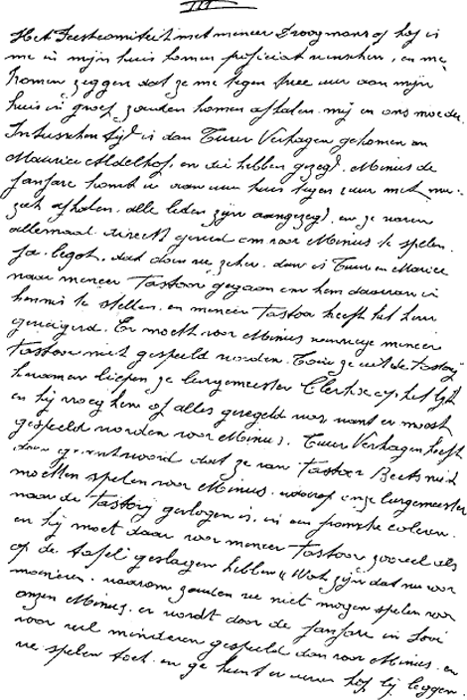 III
Het Feestcomiteit met meneer Drooymans of hof is
me in mijn huis komen proficiat wenschen, en me
komen zeggen dat ze me tegen twee uur aan mijn
huis in groep zouden komen afhalen. mij en ons moeder.
Intusschen tijd is dan Tuur Verhagen gekomen en
Maurice Aldelhof, en die hebben gezegd. Minus de
fanfare komt u van uw huis tegen 2 uur met mu-
ziek afhalen. alle leden zijn aangezegd, en ze waren
allemaal direct gereed om voor Minus te spelen.
Ja. begot, dad doen we zeker. dan is Tuur en Maurice
naar meneer Pastoor gegaan om hem daarvan in
kennis te stellen. en meneer Pastoor heeft het hun
geweigerd. Er mocht voor Minus vanwege meneer
Pastoor niet gespeeld worden. Toen ze uit de Pastorij
kwamen liepen ze burgemeester op het lijf
en hij vroeg hem of alles geregeld was want er moest
gespeeld worden voor Minus. Tuur Verhagen heeft
dan geantwoord dat ze van Pastoor Beets niet
mochten spelen voor Minus. waarop onze burgemeester
naar de Pastorij gevlogen is. in een fransche coleren.
en hij moet daar voor meneer Pastoor zooveel als
op de tafel geslagen hebben " Wat zijn dat nu voor
manieren. waarom zouden we niet mogen spelen voor
onzen Minus. er wordt door de fanfare in Lovi
voor veel minderen gespeeld dan voor Minus. en
we spelen toch. en ge kunt er uwen kop bij leggen.